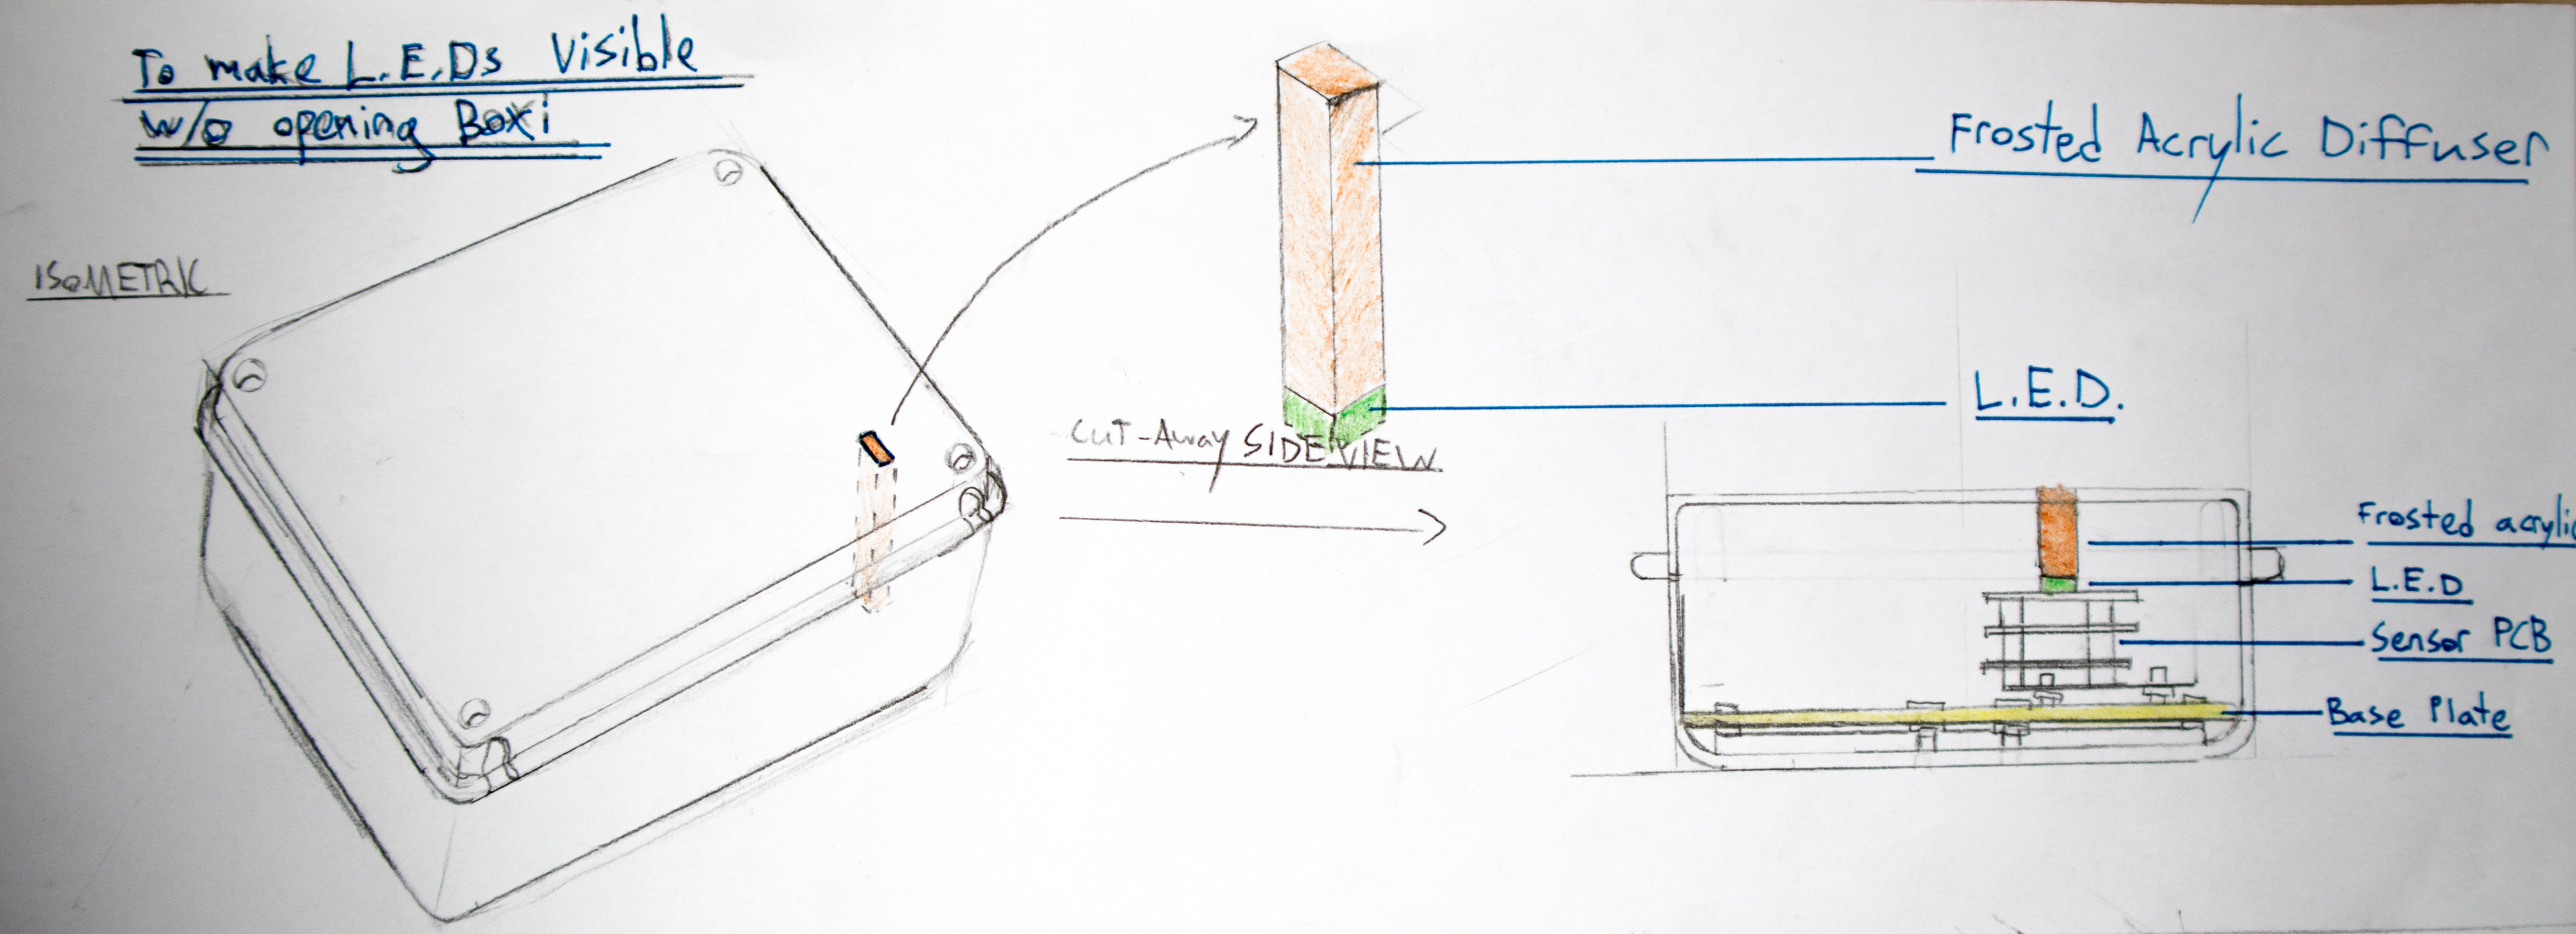 To make L.E.Ds Visible
w/o opening Box!
ISOMETRIC
Frosted Acrylic Diffuser
L.E.D.
CUT-Away SIDE VIEW
Frosted acrylic
L.E.D
Sensor PCB
Base Plate